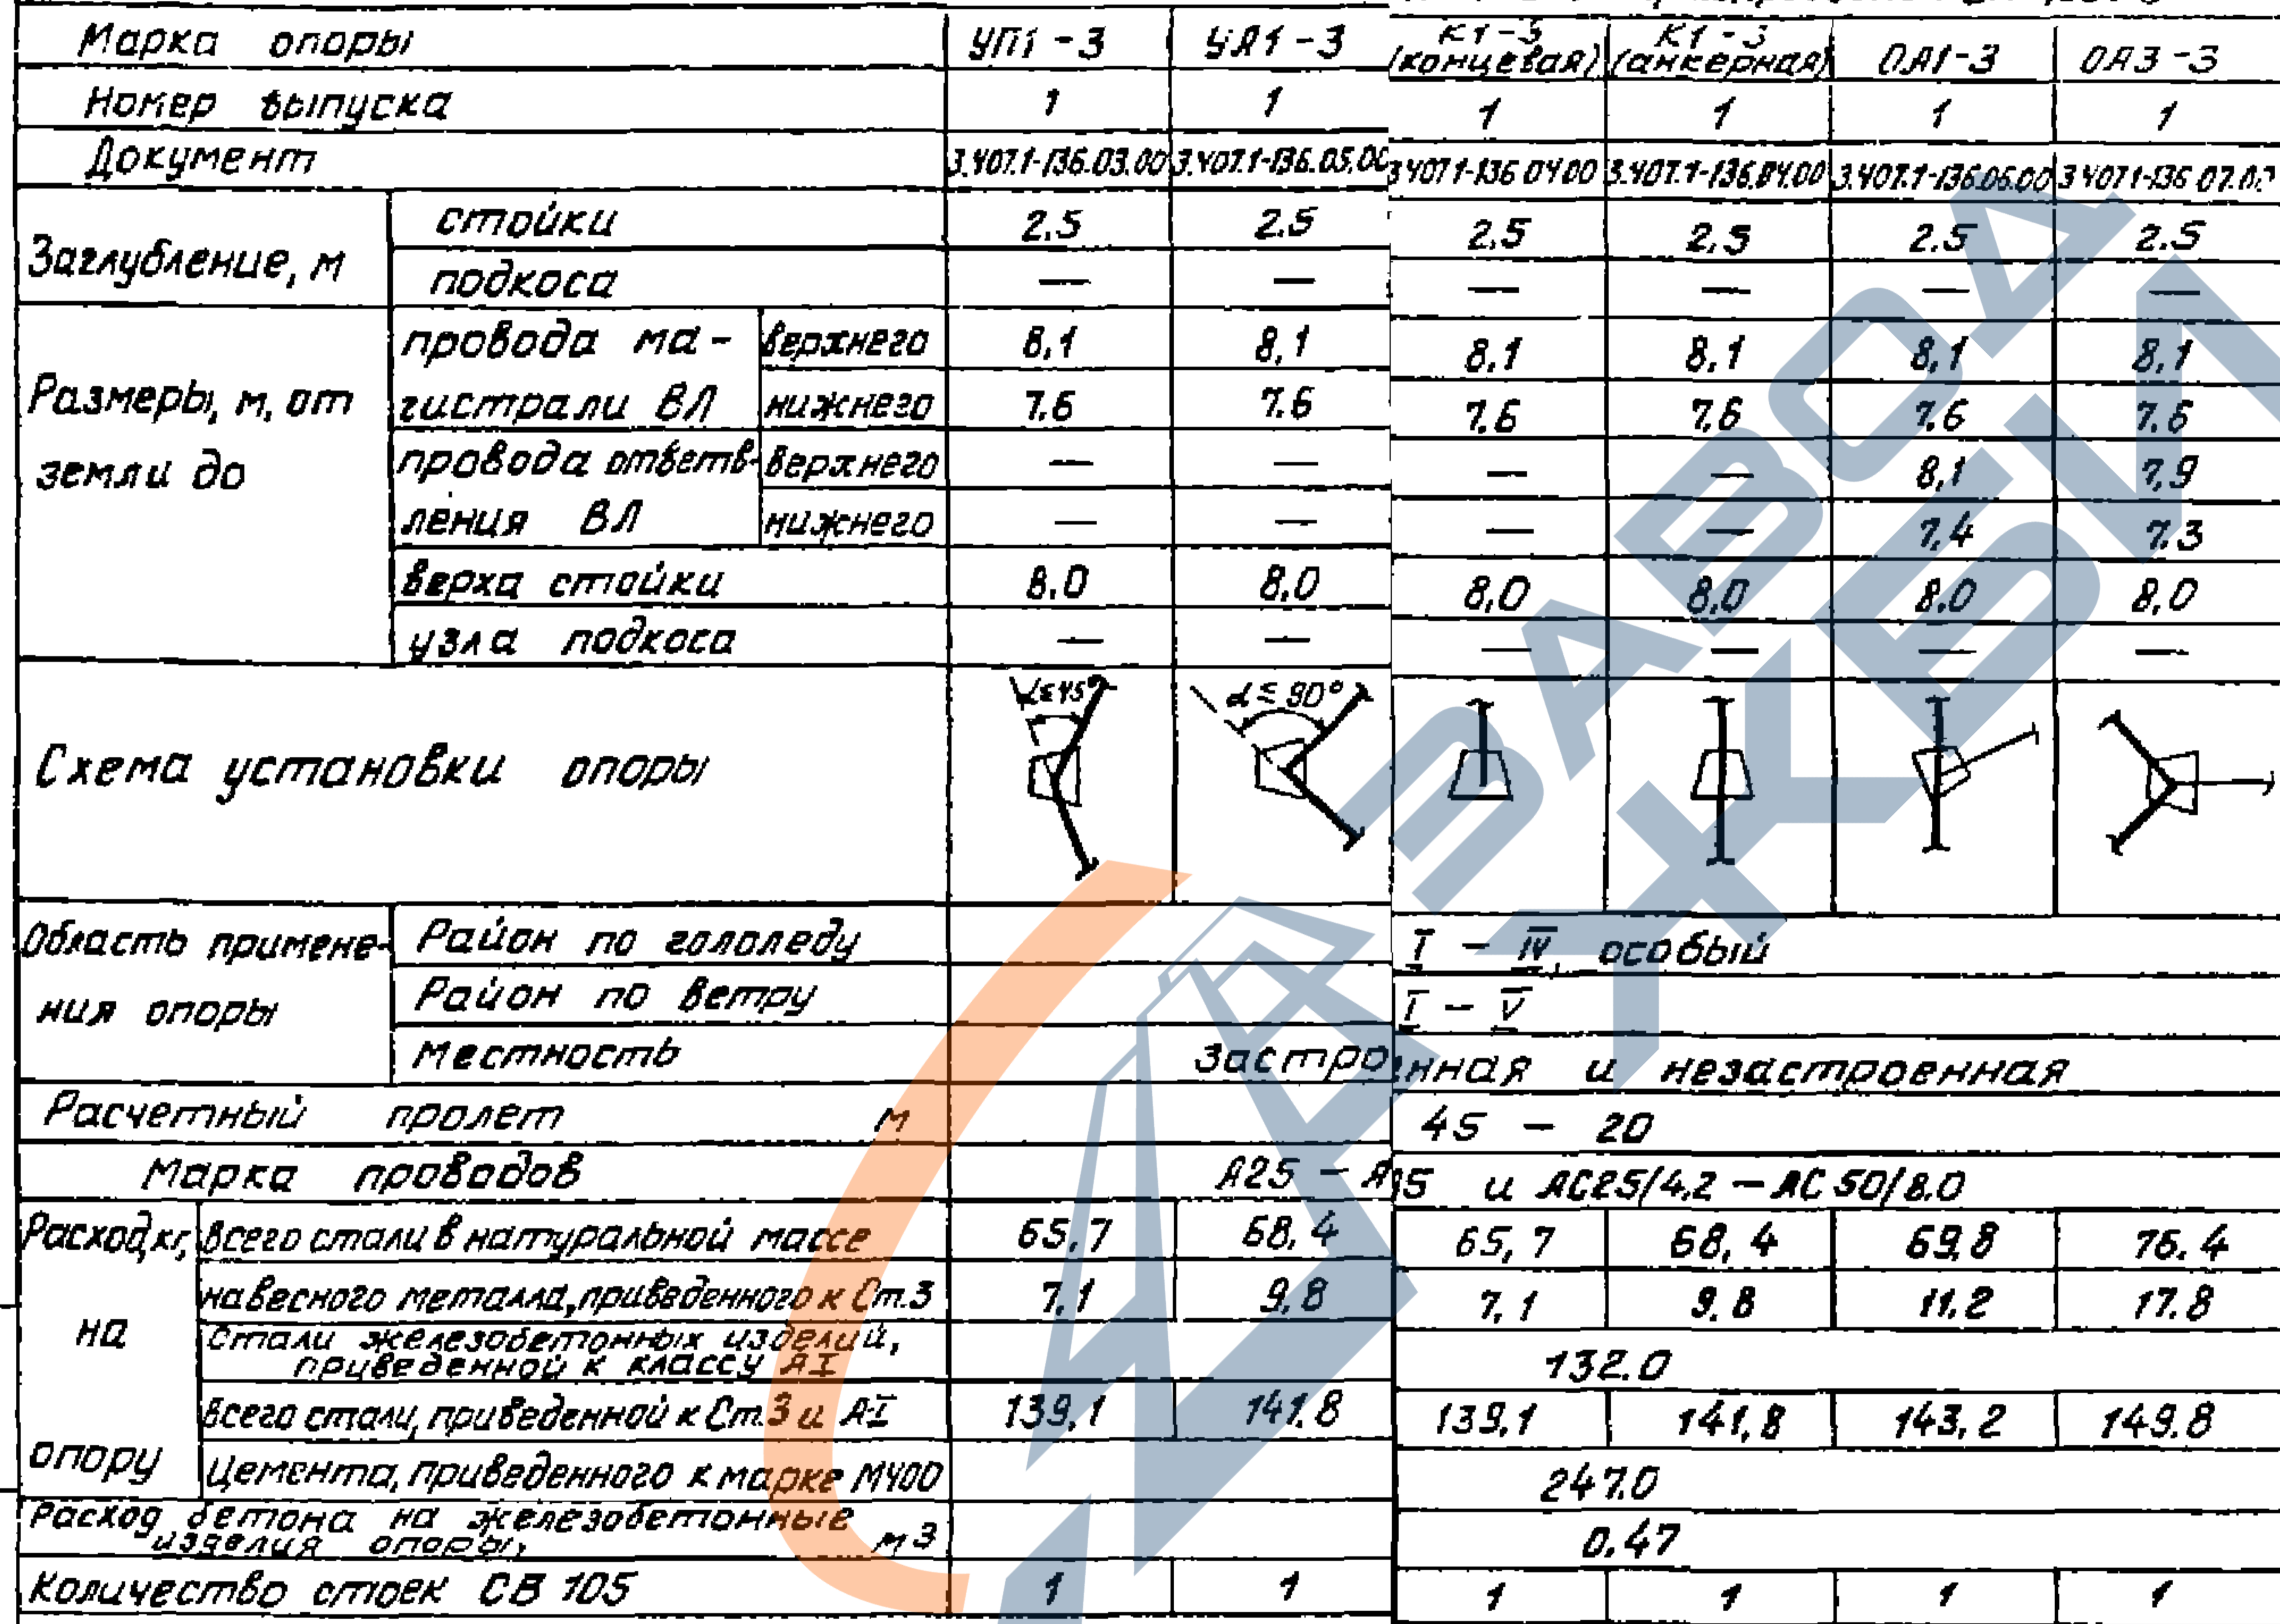 Марка опоры УП1-3 УА1-3 К1-3 (концевая) К1-3 (анкерная) ОА1-3 ОА3-3
Номер выпуска 1 1 1 1 1 1
Документ 3.407.1-136.03.00 3.407.1-136.05.00 3.407.1-136.04.00 3.407.1-136.04.00 3.407.1-136.06.00 3.407.1-136.07.00
Заглубление, м
стойки 2.5 2.5 2.5 2.5 2.5 2.5
подкоса — — — — — —
Размеры, м, от
земли до
провода ма- верхнего 8,1 8,1 8,1 8,1 8,1 8,1
гистрали ВЛ нижнего 7.6 7.6 7.6 7.6 7.6 7.6
провода ответв- верхнего — — — — 8,1 7,9
ления ВЛ нижнего — — — — 7,4 7.3
верха стойки 8.0 8.0 8,0 8,0 8.0 8,0
узла подкоса — — — — — —
Схема установки опоры
α≤45° α≤90°
Область примене-
ния опоры
Район по гололеду I – IV, особый
Район по ветру I – V
Местность Застроенная и незастроенная
Расчетный пролет м 45 – 20
Марка проводов А25 – А95 и АС25/4.2 – АС50/8.0
Расход, кг,
на
опору
всего стали в натуральной массе 65,7 68,4 65,7 68,4 69,8 76.4
навесного металла, приведенного к Ст.3 7,1 9,8 7,1 9,8 11,2 17.8
Стали железобетонных изделий,
приведенной к классу АI 132.0
Всего стали, приведенной к Ст.3 и А-I 139,1 141,8 139,1 141,8 143,2 149.8
Цемента, приведенного к марке М400 247.0
Расход бетона на железобетонные
изделия опоры, м3 0,47
Количество стоек СВ 105 1 1 1 1 1 1
ЗАВОД
ЖБИ